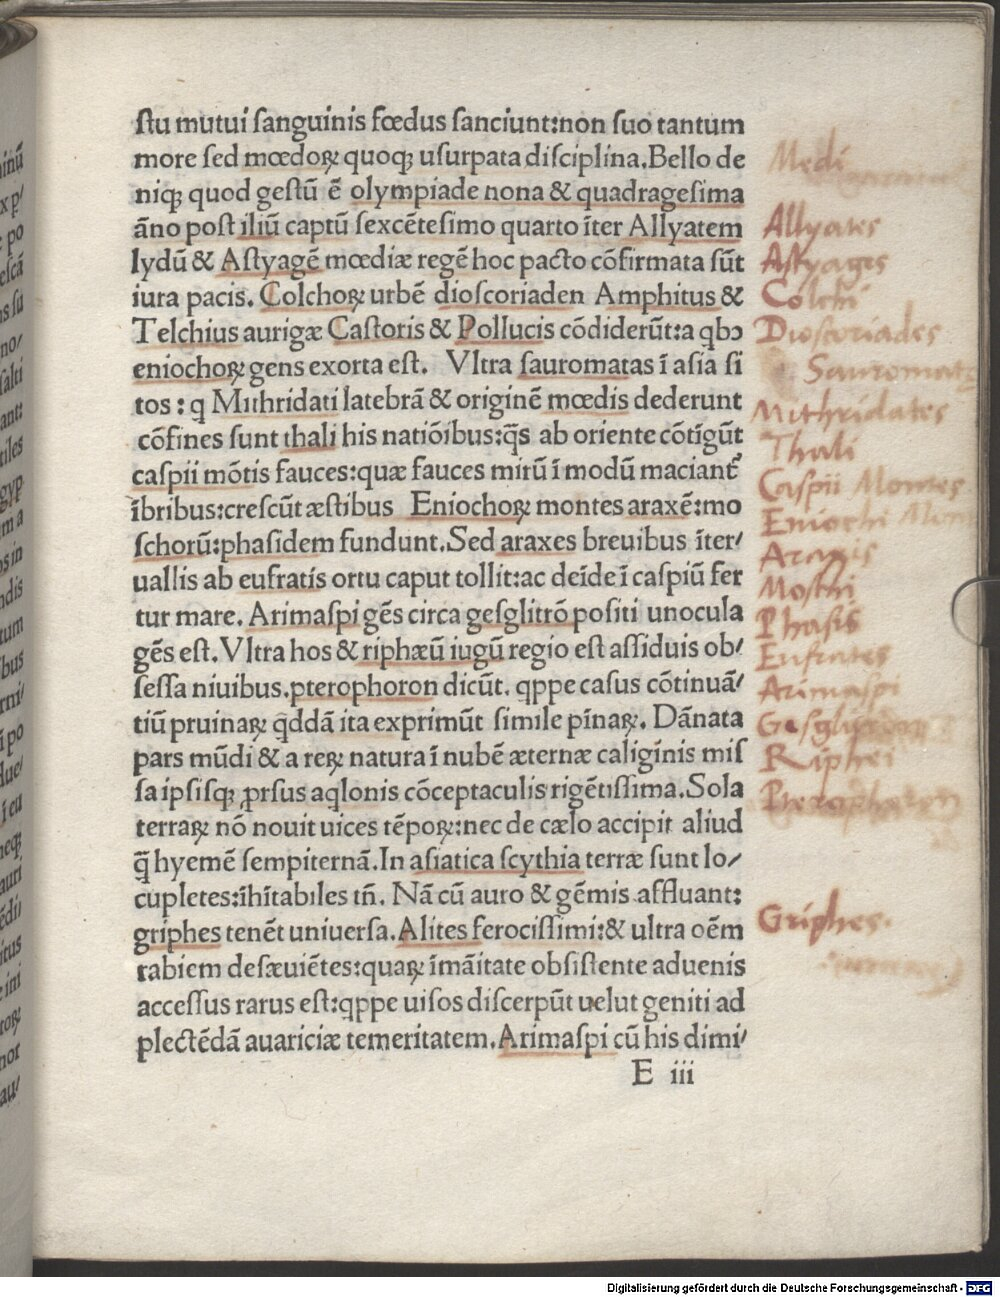 ſtu mutui ſanguinis fœdus ſanciunt:non ſuo tantum
more ſed mœdoꝝ quoqꝫ uſurpata diſciplina.Bello de
niqꝫ quod geſtū ē olympiade nona & quadrageſima
āno poſt iliū captū ſexcēteſimo quarto īter Allyatem
lydū & Aſtyagē mœdiæ regē hoc pacto cōfirmata ſūt
iura pacis. Colchoꝝ urbē dioſcoriaden Amphitus &
Telchius aurigæ Caſtoris & Pollucis cōdiderūt:a qbꝰ
eniochoꝝ gens exorta eſt. Vltra ſauromatas ī aſia ſi
tos : q Mithridati latebrā & originē mœdis dederunt
cōfines ſunt thali his natiōibus:q̄s ab oriente cōtīgūt
caſpii mōtis fauces:quæ fauces mirū ī modū maciant᷑
ībribus:creſcūt æſtibus Eniochoꝝ montes araxē:mo
ſchorū:phaſidem fundunt.Sed araxes breuibus īter/
uallis ab eufratis ortu caput tollit:ac deīde ī caſpiū fer
tur mare. Arimaſpi gēs circa geſglitrō poſiti unocula
gēs eſt.Vltra hos & riphæū iugū regio eſt aſſiduis ob/
ſeſſa niuibus.pterophoron dicūt. qppe caſus cōtinuā/
tiū pruinaꝝ q̄ddā ita exprimūt ſimile pīnaꝝ. Dānata
pars mūdi & a reꝝ natura ī nubē æternæ caliginis miſ
ſa ipſiſqꝫ ꝓrſus aqlonis cōceptaculis rigētiſſima.Sola
terraꝝ nō nouit uices tēpoꝝ:nec de cælo accipit aliud
q̄ hyemē ſempiternā.In aſiatica ſcythia terræ ſunt lo/
cupletes:īhītabiles tñ. Nā cū auro & gēmis affluant:
griphes tenēt uniuerſa.Alites ferociſſimi:& ultra oēm
rabiem deſæuiētes:quaꝝ īmāitate obſiſtente aduenis
acceſſus rarus eſt:qppe uiſos diſcerpūt uelut geniti ad
plectēdā auariciæ temeritatem.Arimaſpi cū his dimi/
E iii
Medi
Allyates
Aſtyages
Colchi
Dioſcoriades
Sauromatę
Mithridates
Thali
Caſpii Montes
Eniochi Mon
Araxis
Moſchi
Phaſis
Eufrates
Arimaſpi
Riphei
Pterophoron
Griphes.
Digitalisierung gefördert durch die Deutsche Forschungsgemeinschaft - DFG